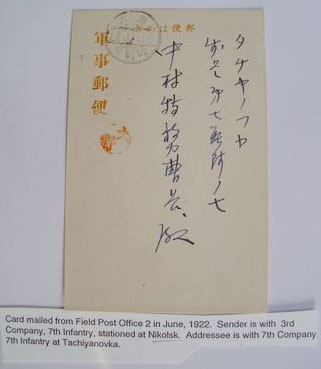 郵便はがき
軍事郵便
タチヤノフカ
歩兵第七聯隊ノ七
中村特務曹長殿
Card mailed from Field Post Office 2 in June, 1922. Sender is with 3rd
Company, 7th Infantry, stationed at Nikolsk. Addressee is with 7th Company
7th Infantry at Tachiyanovka.